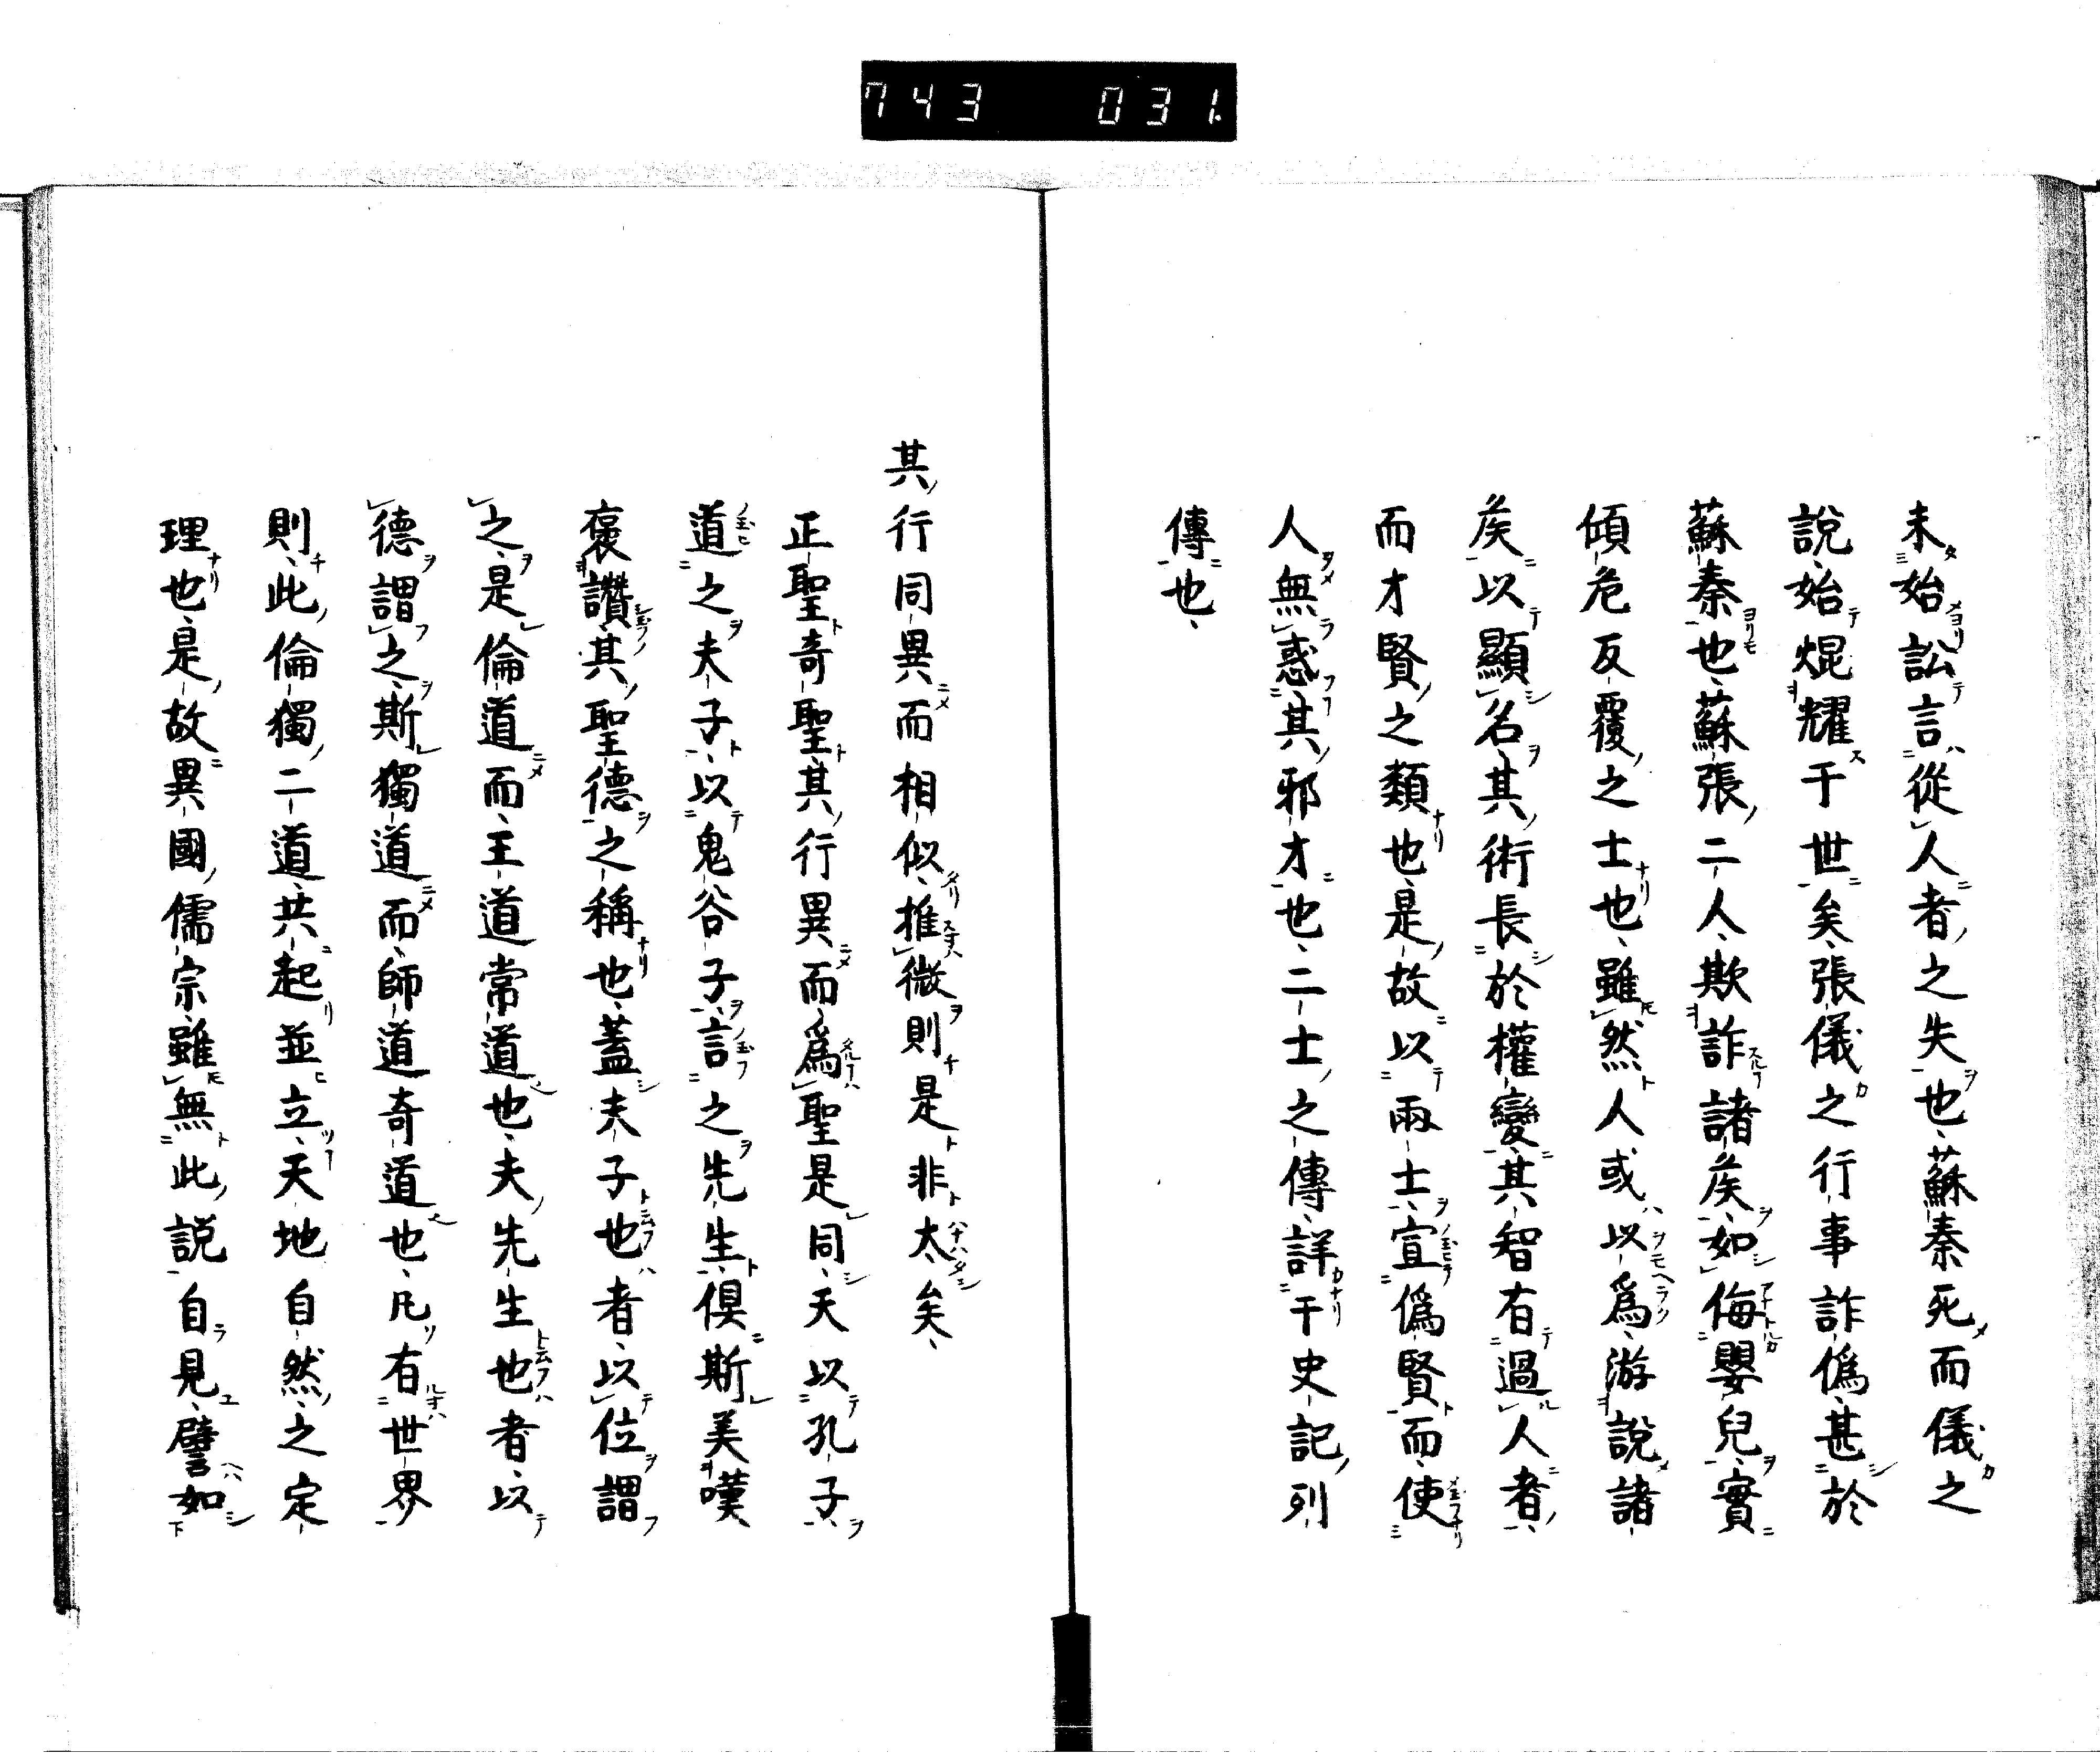 743 031.
未始訟言從人者之失也、蘇秦死而儀之
說、始焜耀于世矣、張儀之行事詐僞、甚於
蘇秦也、蘇張二人、欺詐諸矦、如侮嬰兒、實
傾危反覆之士也、雖然人或以爲游說諸
矦以顯名、其術長於權變、其智有過人者、
而才賢之類也、是故以兩士、宣僞賢而使
人無惑其邪才也、二士之傳、詳于史記列
傳也、
其行同異而相似、推微則是非太矣、
正聖奇聖、其行異而爲聖是同、天以孔子
道之夫子、以鬼谷子言之先生、俱斯美嘆
褒讚、其聖德之稱也、蓋夫子也者、以位謂
之、是倫道而、王道常道也、夫先生也者、以
德謂之、斯獨道而、師道奇道也、凡有世界
則、此倫獨二道、共起並立、天地自然之定
理也、是故異國儒宗、雖無此説自見、譬如